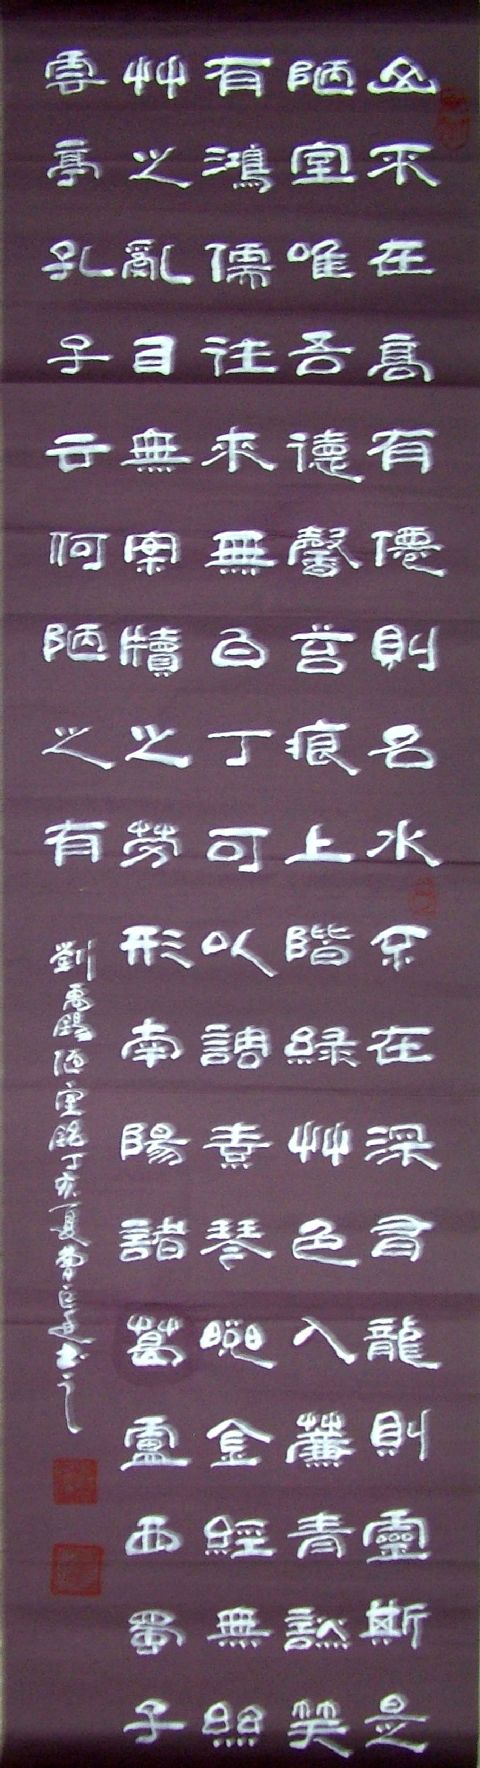 山不在高有僊則名水不在深有龍則靈斯是
陋室唯吾德馨苔痕上階緑艸色入簾青談笑
有鴻儒往來無白丁可以調素琴閱金經無絲
竹之亂耳無案牘之勞形南陽諸葛盧西蜀子
雲亭孔子云何陋之有
劉禹錫陋室銘丁亥夏曹書